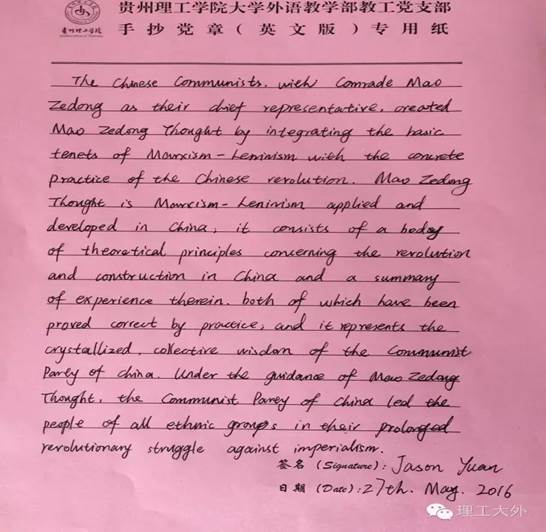 贵州理工学院大学外语教学部教工党支部
手抄党章（英文版）专用纸
贵州理工学院
The Chinese Communists, with Comrade Mao
Zedong as their chief representative, created
Mao Zedong Thought by integrating the basic
tenets of Marxism-Leninism with the concrete
practice of the Chinese revolution. Mao Zedong
Thought is Marxism-Leninism applied and
developed in China; it consists of a body
of theoretical principles concerning the revolution
and construction in China and a summary
of experience therein, both of which have been
proved correct by practice, and it represents the
crystallized, collective wisdom of the Communist
Party of China. Under the guidance of Mao Zedong
Thought, the Communist Party of China led the
people of all ethnic groups in their prolonged
revolutionary struggle against imperialism.
签名 (Signature): Jason Yuan
日期 (Date): 27th. May. 2016
理工大外